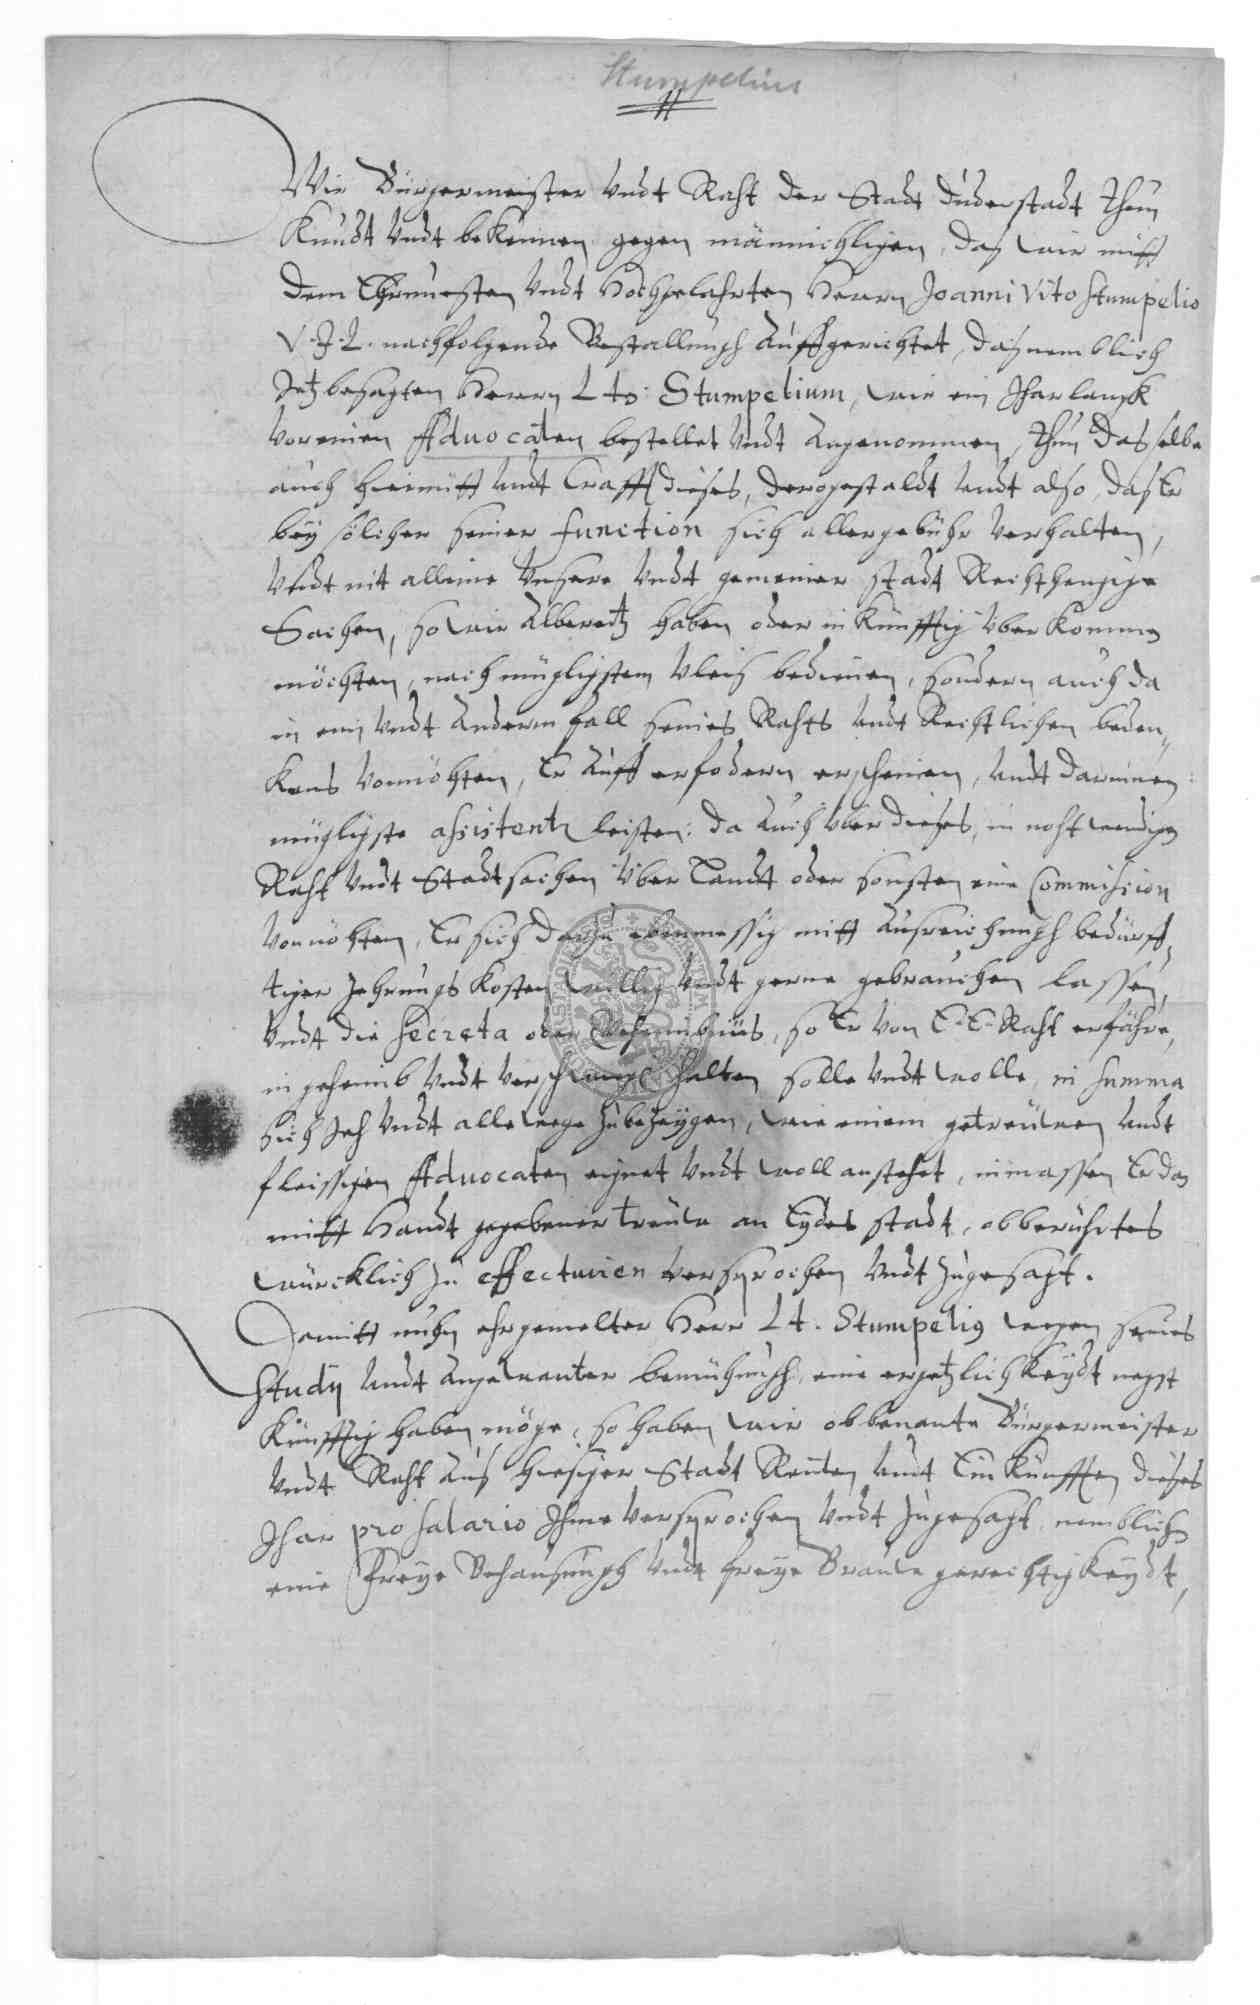 Stumpelius
Wir Bürgermeister vndt Raht der Stadt Duderstadt thun
Kundt vndt bekennen gegen männichligen, das wir mitt
dem Ehrnuesten vndt Hochgelahrten Herrn Joanni Vito Stumpelio
V. J. L. nachfolgende Bestallungh auffgerichtet, daß nemblich
Jetzbesagten Herrn Lto: Stumpelium, wir ein Jharlangk
vor einen Advocaten bestellet vndt angenommen, thun dasselbe
auch hiermitt vndt Crafft dieses, derogestaldt vndt also, daß Er
bey solcher seiner function sich allergebühr verhalten,
vndt nit alleine vnsere vndt gemeiner stadt Rechthengige
Sachen, so wir albereitz haben oder in künfftig vberkommen
möchten, nach mügligstem vleis bedienen, sondern auch da
in ein vndt anderm fall seines Rahts vndt Rechtlichen beden-
kens vonnöhten, Er auff erfodern erscheinen, vndt darinnen
mügligste assistentz leisten: da auch vber dieses, in nohtwendigen
Raht vndt Stadtsachen vber Landt oder sonsten eine Commission
vonnöhten, Er sich darzu ebenmessig mitt ausreichungh bedürff-
tiger Zehrungs Kosten willig vndt gerne gebrauchen lassen,
vndt die secreta oder Geheimbnüs, so Er von E. E. Raht erfahre,
in geheimb vndt verschwiegen halten solle vndt wolle, in summa
sich Jeh vndt allewege zubezeygen, wie einem getreuwen vndt
fleissigen Advocaten eignet vndt woll anstehet, inmassen Er dan
mitt Handt gegebener treuwe an Eydes stadt, obberührtes
würcklich zu effectuiren versprochen vndt zugesagt.
Damitt nuhn ehrgemelter Herr Lt. Stumpelius wegen seines
Studij vndt angewanter bemühungh, eine ergetzlichkeydt negst
künfftig haben möge, so haben wir obbenante Bürgermeister
vndt Raht aus hiesiger Stadt Renten vndt Einkünfften dieses
Jhar pro salario Ihme versprochen vndt zugesagt, nemblich
eine freye Behausungh vndt freye Brauwgerechtigkeydt,